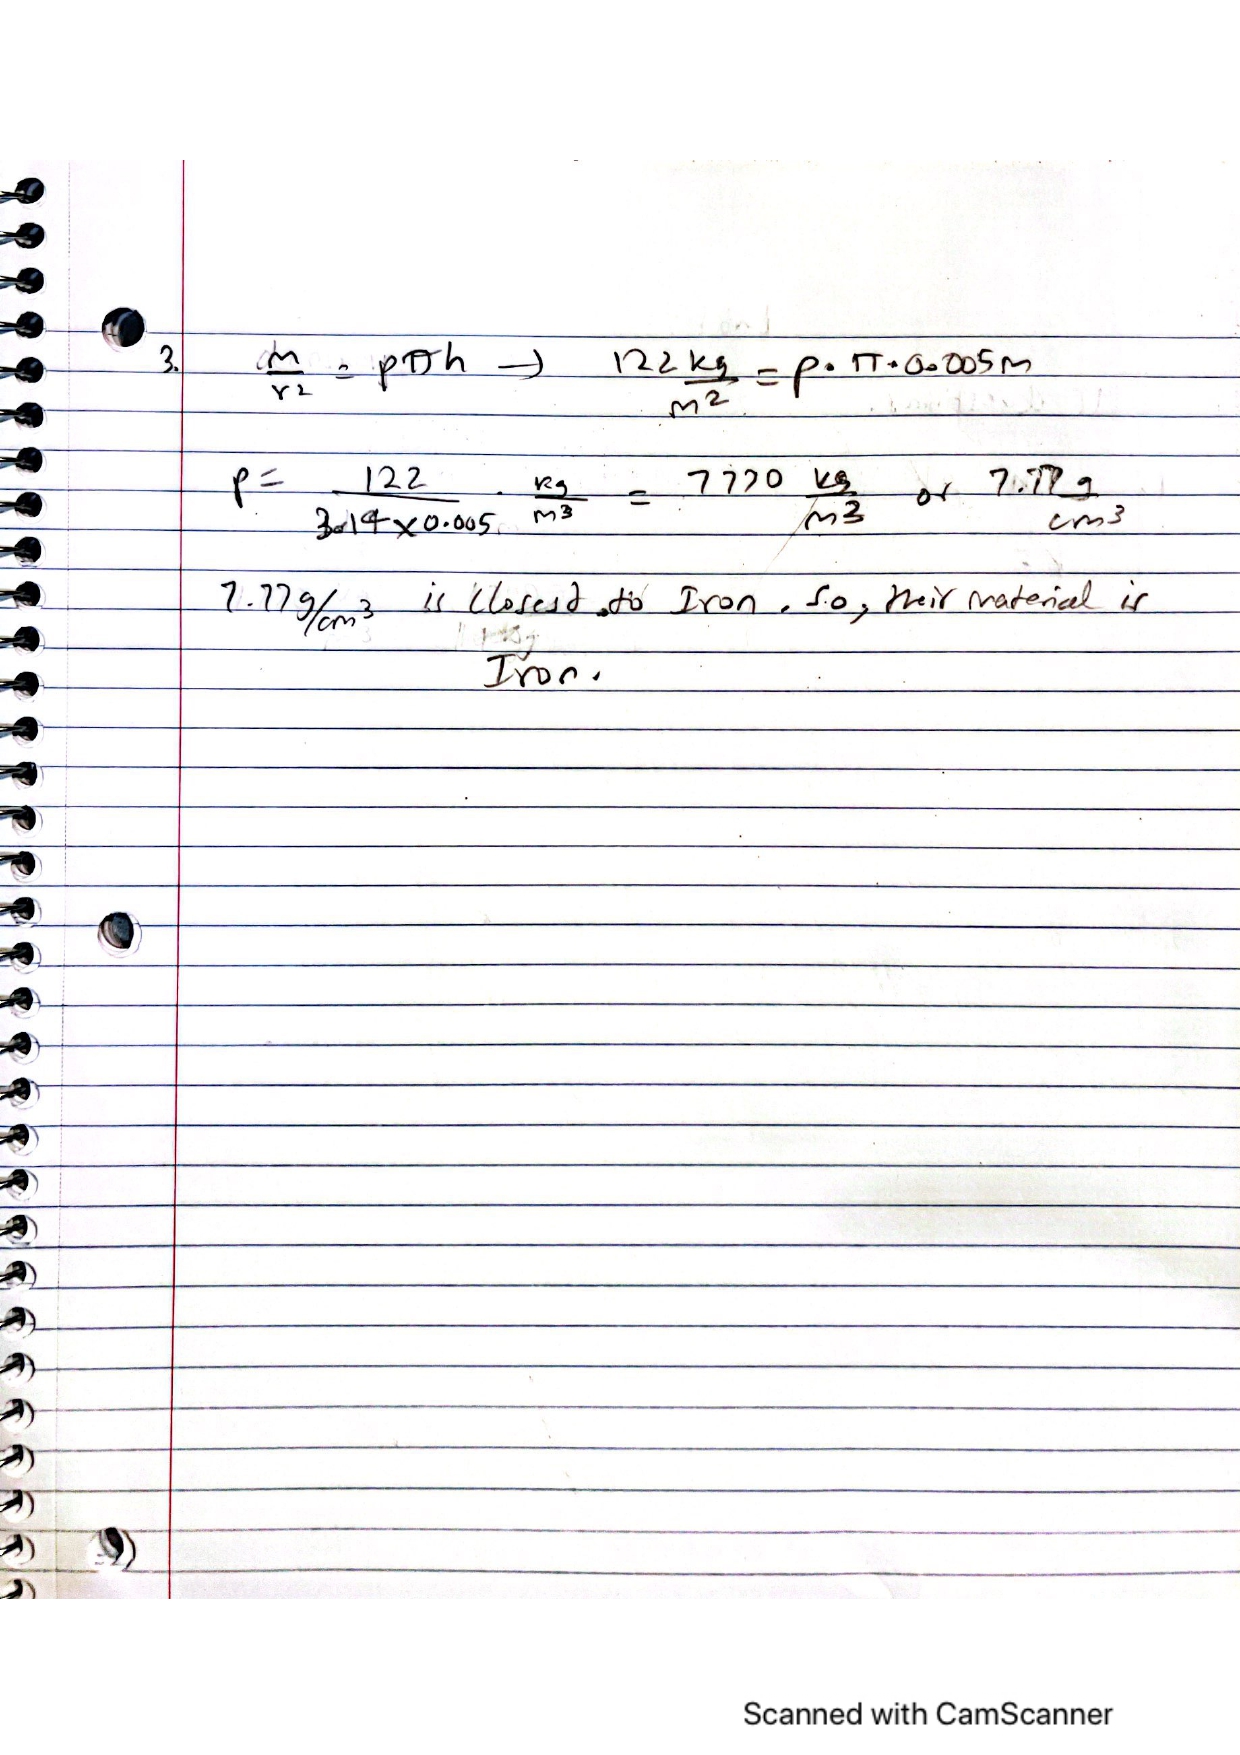 3. m/r2 = ρπh → 122 kg/m2 = ρ・π・0.005m
ρ = 122/3.14×0.005 · kg/m3 = 7770 kg/m3 or 7.77 g/cm3
7.77g/cm3 is closest to Iron. So, their material is
Iron.
Scanned with CamScanner